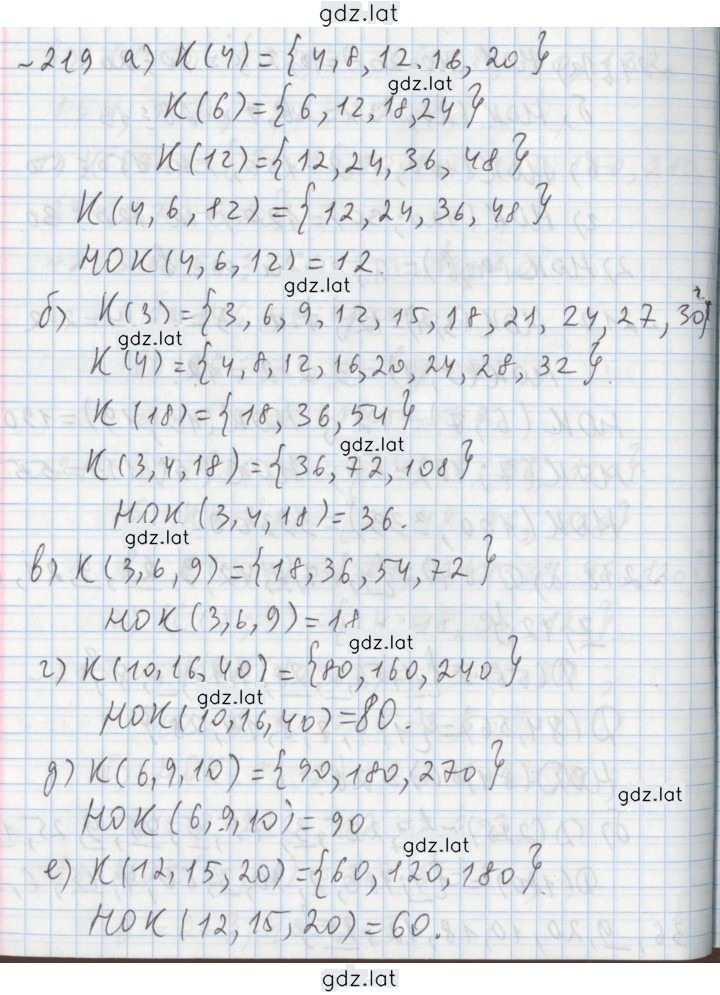 gdz.lat
~219 а) К(4)={4,8,12.16,20}
gdz.lat
К(6)={6,12,18,24}
К(12)={12,24,36,48}
К(4,6,12)={12,24,36,48}
НОК(4,6,12)=12.
gdz.lat
б) К(3)={3,6,9,12,15,18,21,24,27,30}
gdz.lat
К(4)={4,8,12,16,20,24,28,32}.
К(18)={18,36,54}
gdz.lat
К(3,4,18)={36,72,108}
НОК(3,4,18)=36.
gdz.lat
в) К(3,6,9)={18,36,54,72}
НОК(3,6,9)=18
gdz.lat
г) К(10,16,40)={80,160,240}
gdz.lat
НОК(10,16,40)=80.
д) К(6,9,10)={90,180,270}
gdz.lat
НОК(6,9,10)=90
gdz.lat
е) К(12,15,20)={60,120,180}.
НОК(12,15,20)=60.
gdz.lat